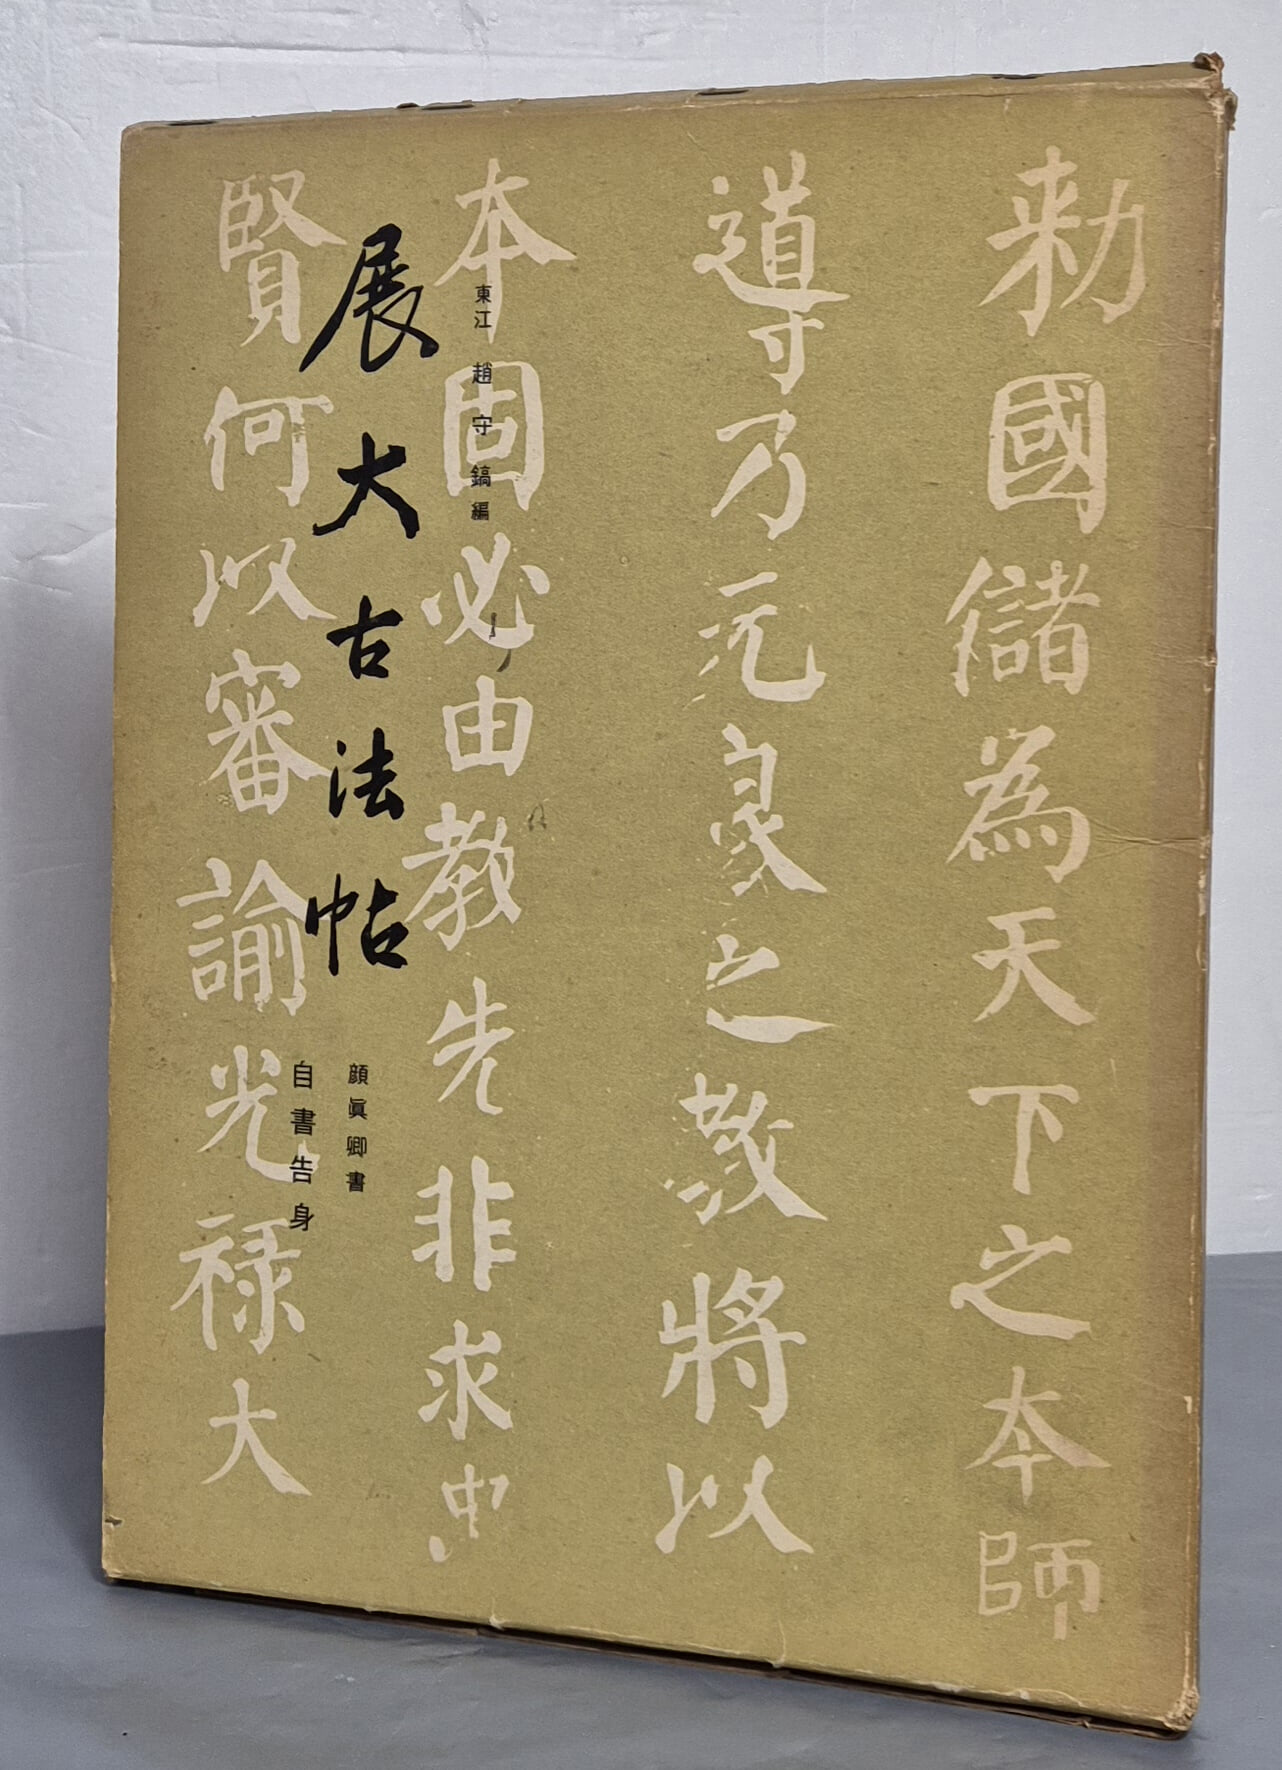 勅國儲為天下之本師
導乃元良之教將以
本固必由教先非求忠
賢何以審諭光祿大
東江 趙守鎬 編
展大古法帖
顔眞卿書
自書告身